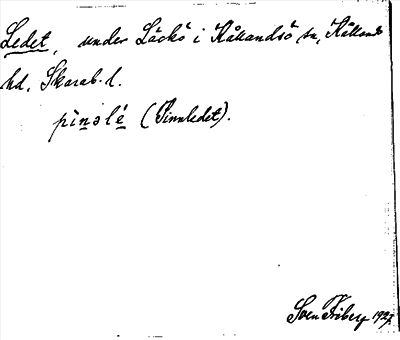 Ledet, under Läckö i Kållandsö sn, Kållands
hd, Skarab. l.
pìnəlé (Pinnledet).
Sven Friberg 1927.